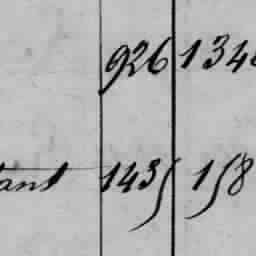 926 134
ant 1435 158